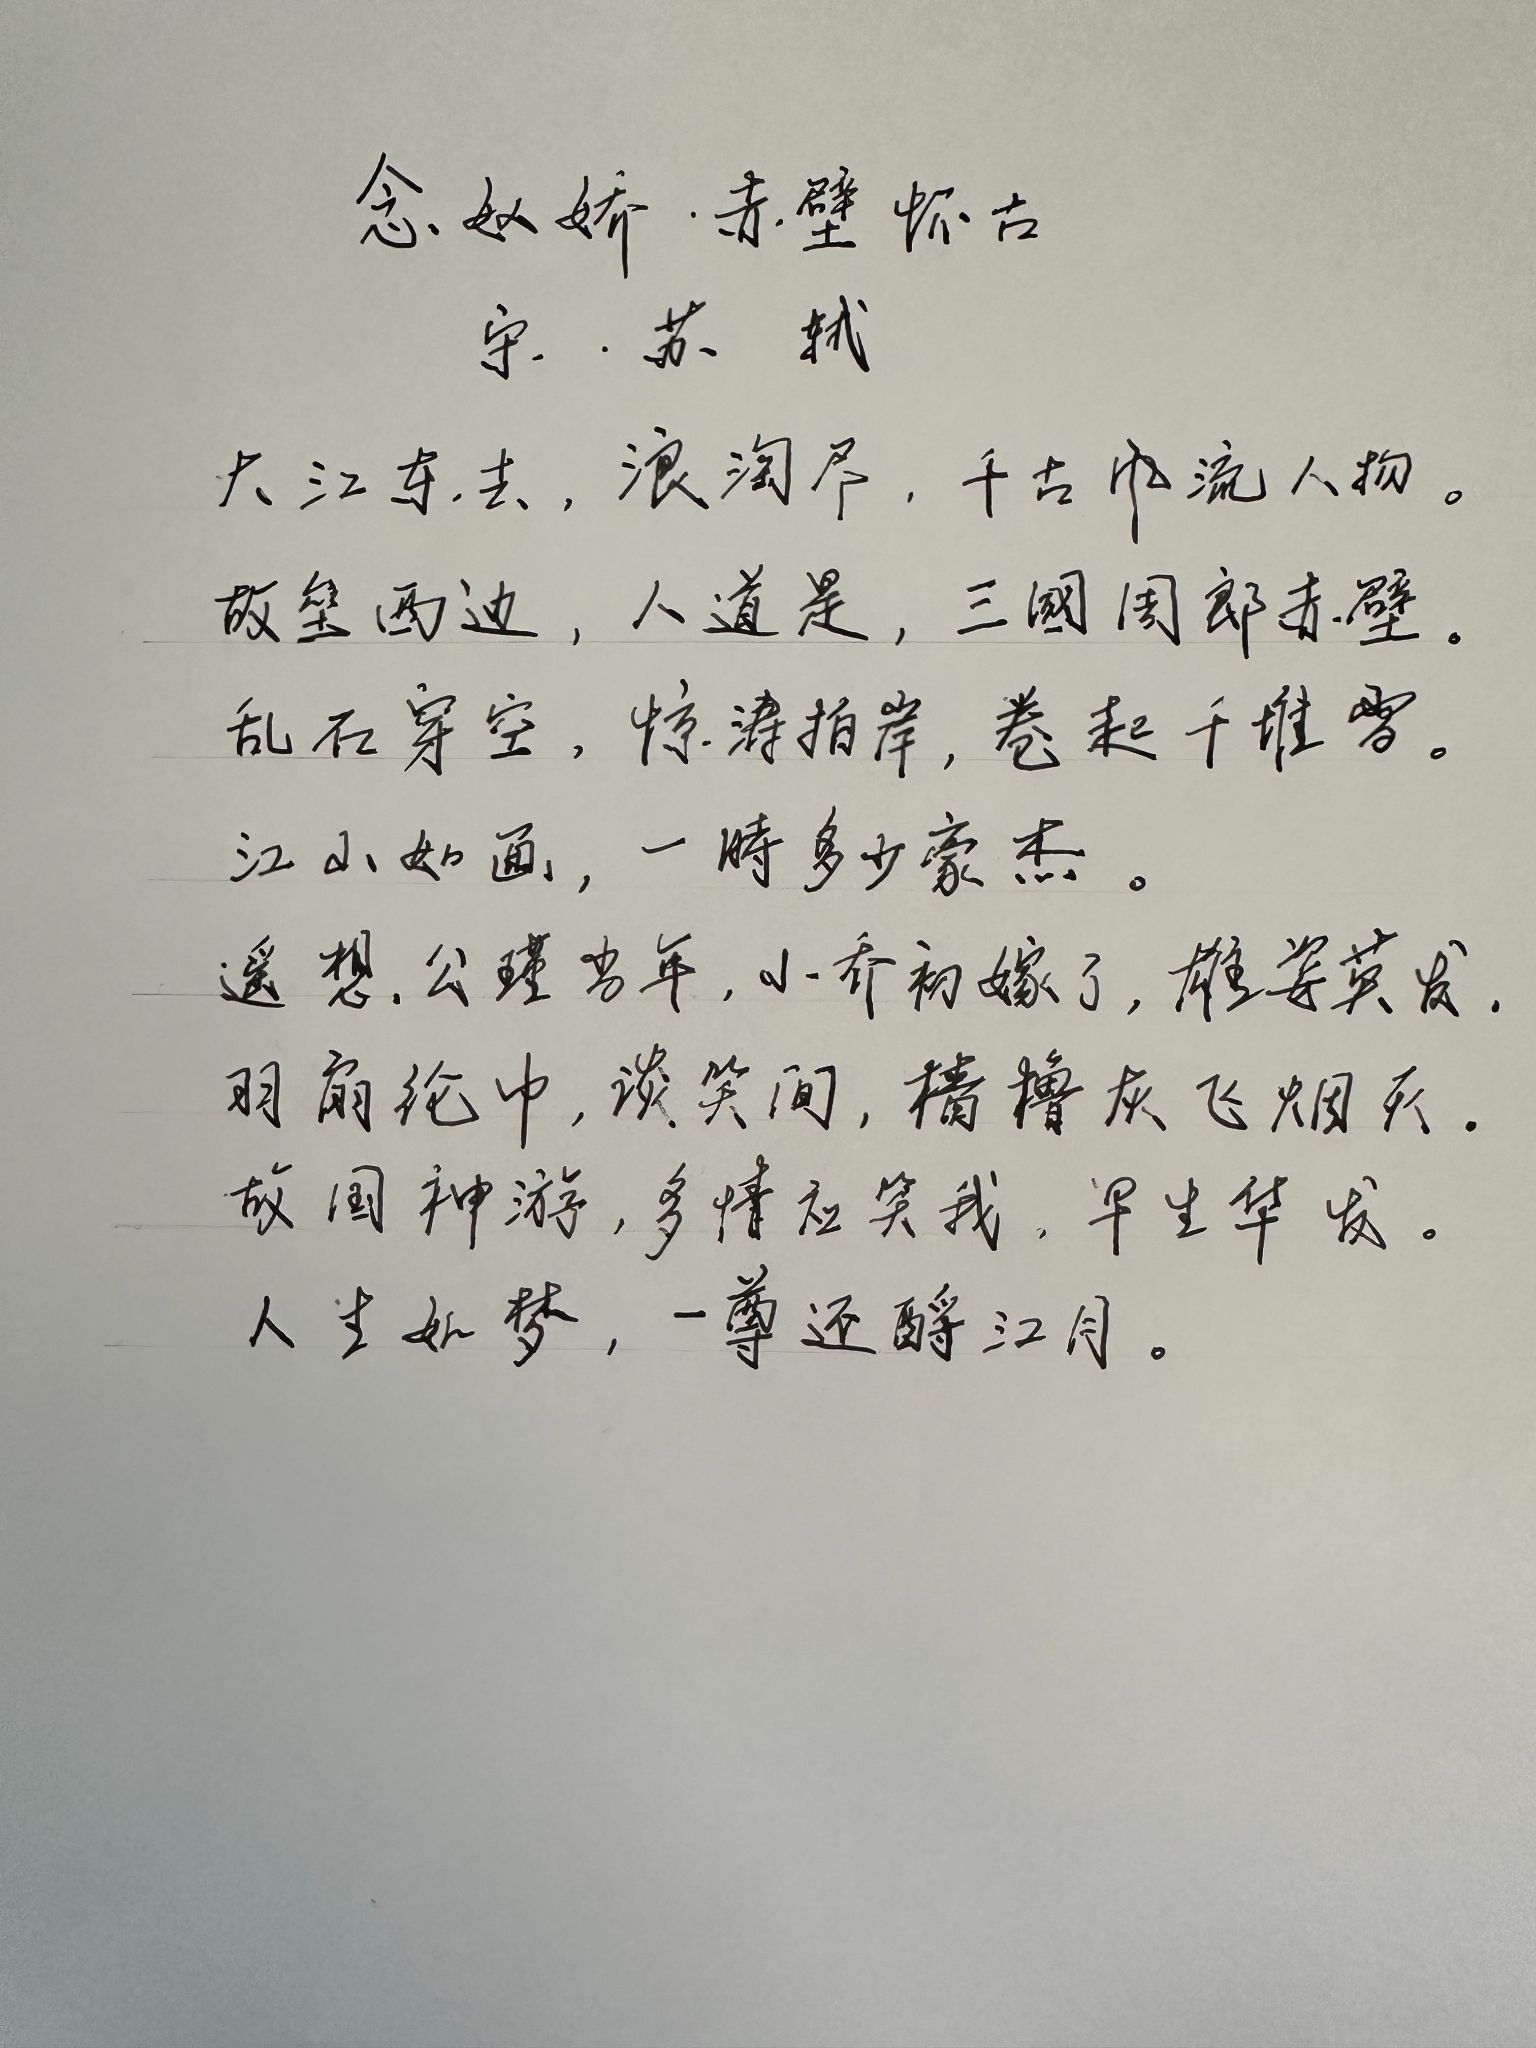 念奴娇·赤壁怀古
宋·苏轼
大江东去，浪淘尽，千古风流人物。
故垒西边，人道是，三國周郎赤壁。
乱石穿空，惊涛拍岸，卷起千堆雪。
江山如画，一時多少豪杰。
遥想公瑾当年，小乔初嫁了，雄姿英发，
羽扇纶巾，谈笑间，樯橹灰飞烟灭。
故国神游，多情应笑我，早生华发。
人生如梦，一尊还酹江月。